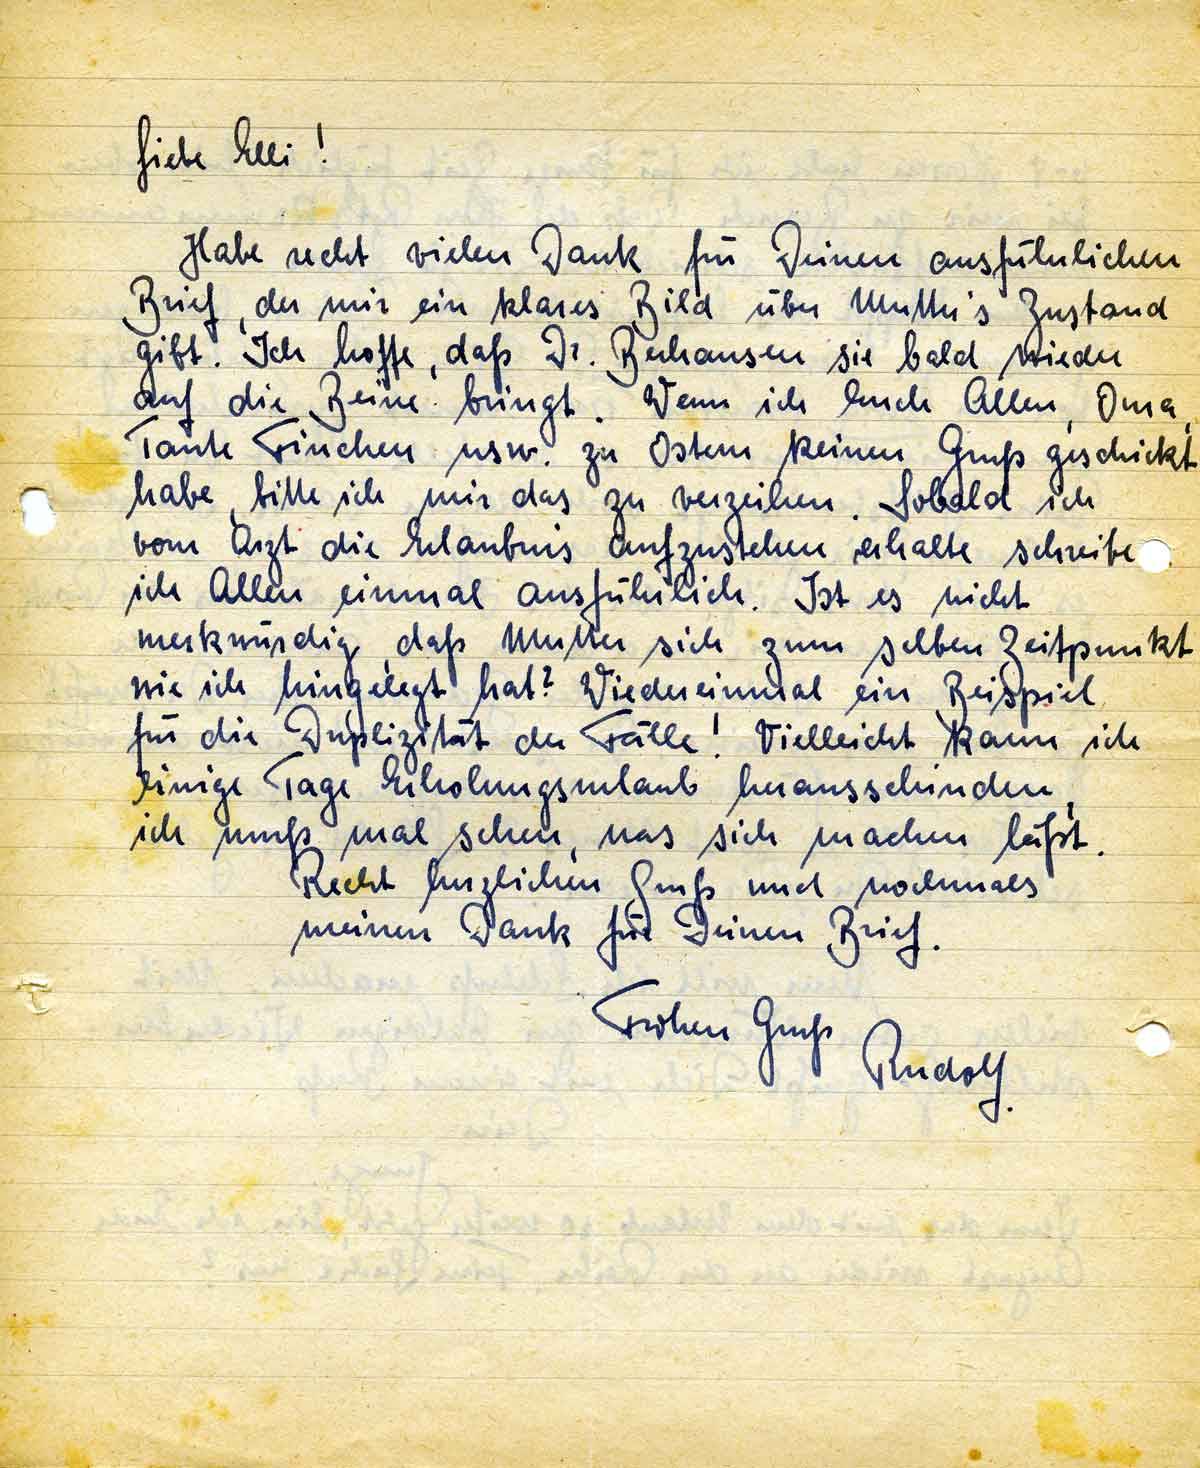 Liebe Elli!
Habe recht vielen Dank für Deinen ausführlichen
Brief, der mir ein klares Bild über Mutter's Zustand
gibt. Ich hoffe, daß Dr. Berhausen sie bald wieder
auf die Beine bringt. Wenn ich Euch Allen, Oma,
Tante Finchen usw. zu Ostern keinen Gruß geschickt
habe, bitte ich mir das zu verzeihen. Sobald ich
vom Arzt die Erlaubnis aufzustehen erhalte schreibe
ich Allen einmal ausführlich. Ist es nicht
merkwürdig, daß Mutter sich zum selben Zeitpunkt
wie ich hingelegt hat? Wiedereinmal ein Beispiel
für die Duplizität der Fälle! Vielleicht kann ich
einige Tage Erholungsurlaub herausschinden,
ich muß mal sehen, was sich machen läßt.
Recht herzlichen Gruß und nochmals
meinen Dank für Deinen Brief.
Frohen Gruß
Rudolf.